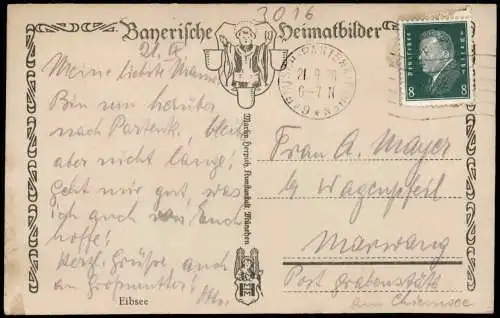 3016
Bayerische Heimatbilder
21. IX
Meine liebste Mama!
Bin nun herüber
nach Partenk., bleib
aber nicht lange!
Geht mir gut, was
ich auch von Euch
hoffe!
Herzl. Grüße auch
an Großmutter!
Otto.
Eibsee
GARMISCH-PARTENKIRCHEN
21. 9.
6-7 N
Deutsches Reich
8 8
Frau A. Mayer
b/ Wagenpfeil
Marwang
Post Grabenstätt
am Chiemsee